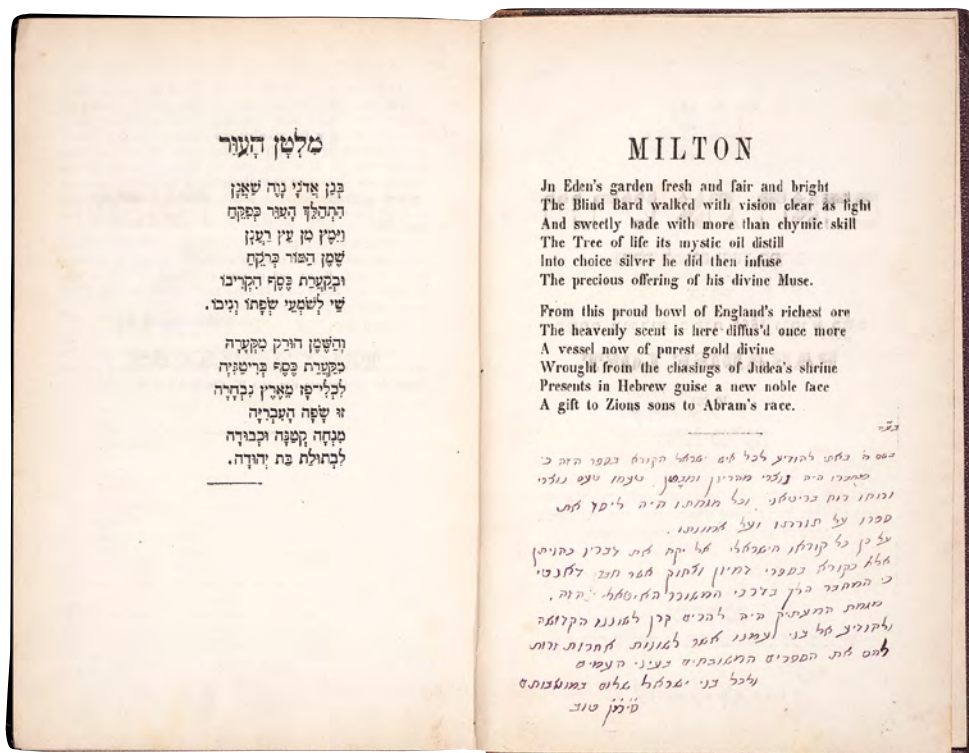 מִלְטָן הָעִוֵּר
בְּגַן אֲדֹנָי נָוֶה שַׁאֲנָן
הִתְהַלֵּךְ הָעִוֵּר כְּפִקֵּחַ
וַיָּמֶץ מִן עֵץ רַעֲנָן
שֶׁמֶן הַמּוֹר כְּרֹקֵחַ
וּבְקַעֲרַת כֶּסֶף הִקְרִיבוֹ
שַׁי לְשֹׁמְעֵי שְׂפָתוֹ וְנִיבוֹ.
וְהַשֶּׁמֶן הוּרַק מִקְּעָרָה
מִקַּעֲרַת כֶּסֶף בְּרִיטַנִּיָּה
לִכְלִי־פָז מֵאֶרֶץ נִבְחָרָה
זוּ שָׂפָה הָעִבְרִיָּה
מִנְחָה קְטַנָּה וּכְבוּדָה
לִבְתוּלַת בַּת יְהוּדָה.
MILTON
Jn Eden's garden fresh and fair and bright
The Blind Bard walked with vision clear as light
And sweetly bade with more than chymic skill
The Tree of life its mystic oil distill
Into choice silver he did then infuse
The precious offering of his divine Muse.
From this proud bowl of England's richest ore
The heavenly scent is here diffus'd once more
A vessel now of purest gold divine
Wrought from the chasings of Judea's shrine
Presents in Hebrew guise a new noble face
A gift to Zions sons to Abram's race.
באתי להודיע לכל איש ישראל הקורא בספר הזה כי
מחברו היה נוצרי טעמו טעם נוצרי
ורוחו רוח בריטאני וכל מגמתו היה ליסד את
ספרו על תורתו ועל אמונתו.
על כן כל קוראו הישראלי אל יקח את דבריו כהויתן
אלא כקורא בספרי דמיון וצחוק אשר חבר דאנטי
כי המחבר הלך בדרכי המשורר האיטאלי הזה.
מגמת המעתיק היה להרים קרן לשוננו הקדושה
ולהודיע אל בני עמנו אשר לשונות אחרות זרות
להם את הספרים המשובחים בעיני העמים
ולכל בני ישראל שלום במושבותם
סימן טוב